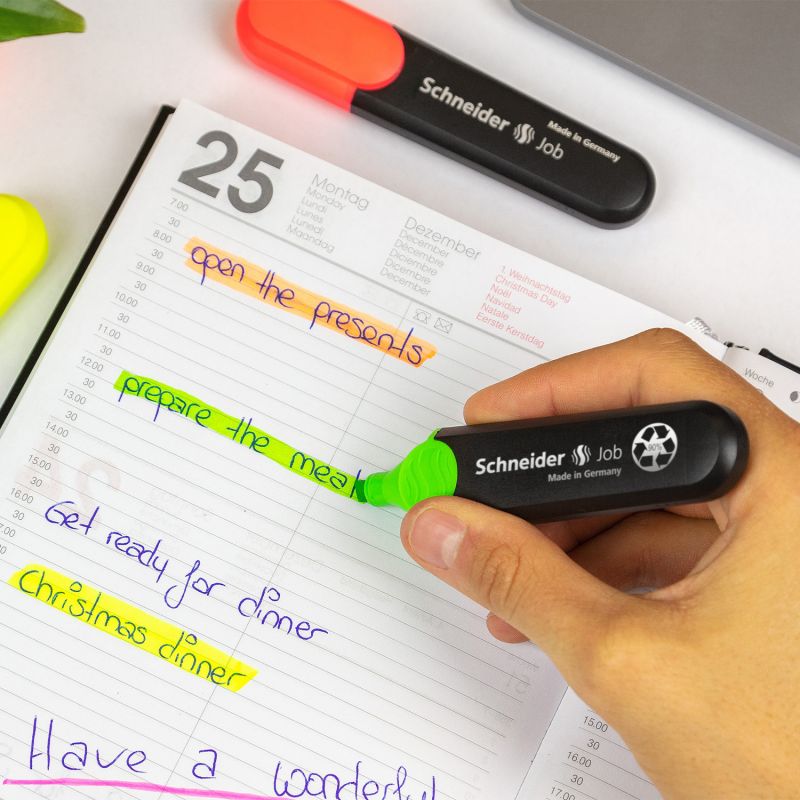 Schneider Job
Made in Germany
25
Montag
Monday
Lundi
Lunes
Lunedì
Maandag
Dezember
December
Décembre
Diciembre
Dicembre
December
1. Weihnachtstag
Christmas Day
Noël
Navidad
Natale
Eerste Kerstdag
Woche
7.00
30
8.00
30
open the presents
9.00
30
10.00
30
11.00
30
12.00
prepare the meal
30
13.00
30
14.00
30
15.00
30
16.00
Get ready for dinner
30
Christmas dinner
30
Have a wonderful
Schneider Job
Made in Germany
90%
15.00
30
16.00
30
17.00